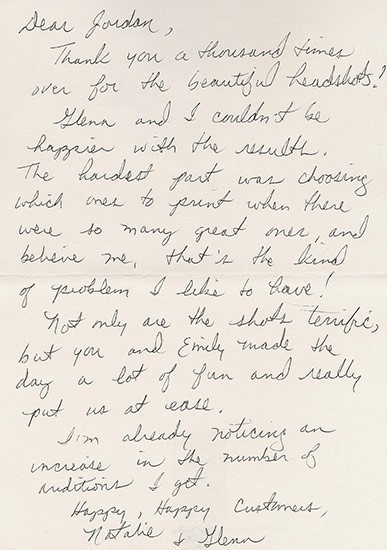 Dear Jordan,
Thank you a thousand times
over for the beautiful headshots!
Glenn and I couldn't be
happier with the results.
The hardest part was choosing
which ones to print when there
were so many great ones, and
believe me, that's the kind
of problem I like to have!
Not only are the shots terrific,
but you and Emily made the
day a lot of fun and really
put us at ease.
I'm already noticing an
increase in the number of
auditions I get.
Happy, Happy Customers,
Natalie & Glenn